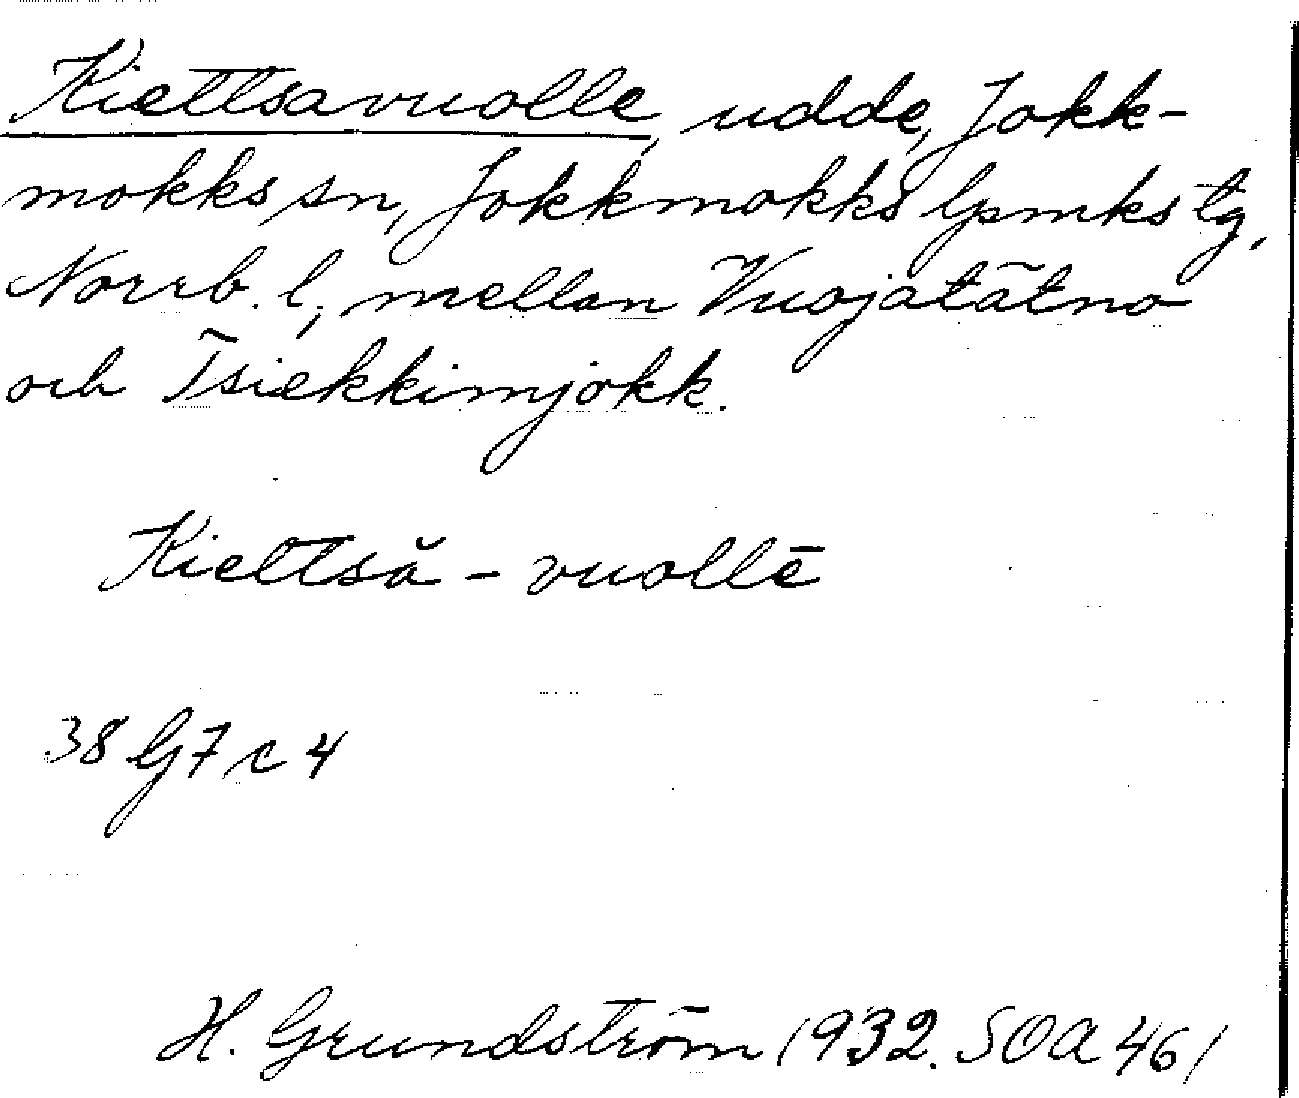 Kiettsavuolle, udde, Jokk-
mokks sn, Jokkmokks lpmks tg,
Norrb. l; mellan Vuojatätno
och Tsiekkimjokk.
Kiettsă - vuollē
38 G7 c 4
H. Grundström (1932. SOA 46)